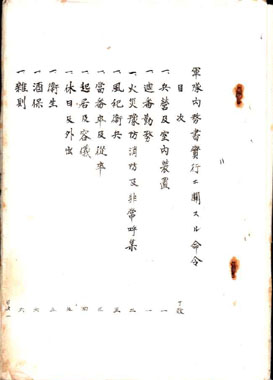 軍隊内務書實行ニ關スル命令
目次
丁数
一、兵營及室内裝置 一
一、週番勤務 一
一、火災豫防消防及非常呼集 二
一、風紀衛兵 三
一、當番卒及從卒
一、起居及容儀 四
一、休日及外出 五
一、衛生 五
一、酒保 六
一、雜則 六